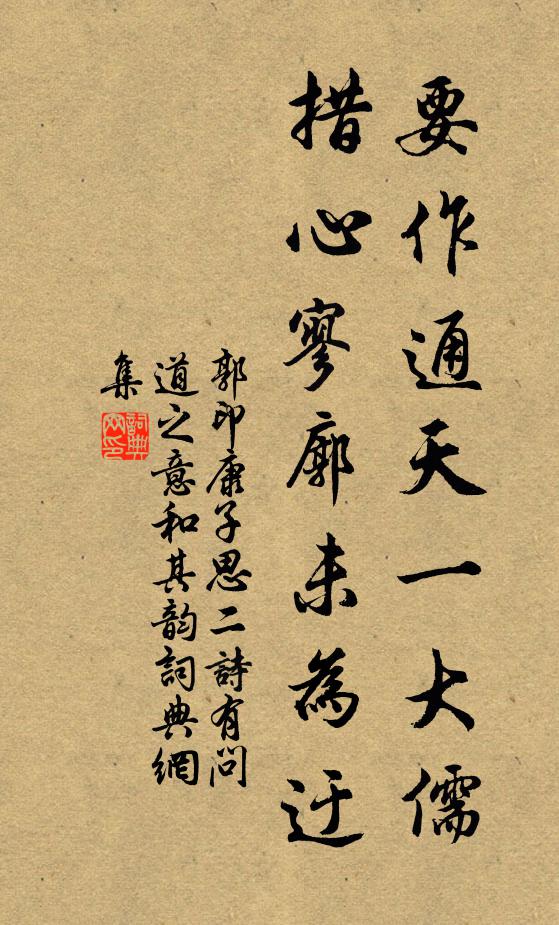 要作通天一大儒
措心寥廓未為迂
郭印康子思二詩有問
道之意和其韵詞典網
集
詞典
网印